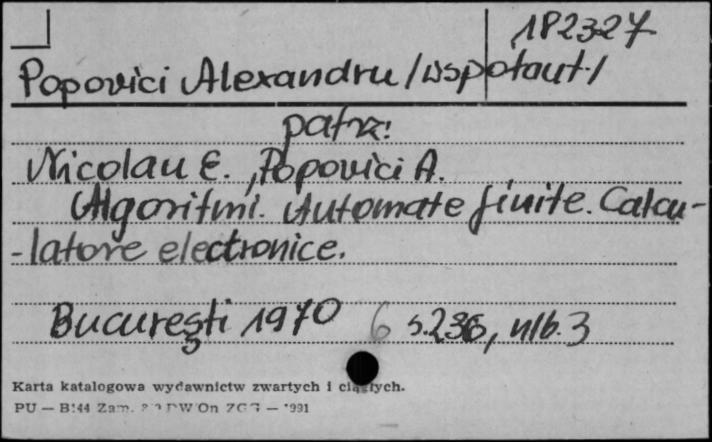 182327
Popovici Alexandru /współaut./
patrz:
Nicolau E., Popovici A.
Algoritmi. Automate finite. Calcu-
-latore electronice.
București 1970 6 s.236, nlb. 3
Karta katalogowa wydawnictw zwartych i ciągłych.
PU — B144 Zam. DW/On ZGG — 1991